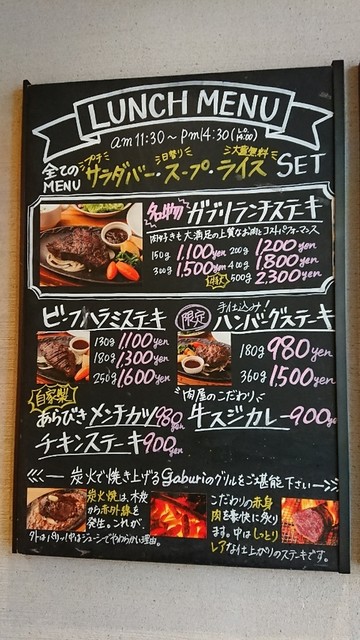 LUNCH MENU
am11:30~pm14:30(L.O 14:00)
プチ 日替り 大盛無料
全てのMENU サラダバー・スープ・ライス SET
名物 ガブリランチステーキ
肉好きも大満足の上質なお肉とコストパフォーマンス
150g 1,100yen 200g 1200yen
300g 1,500yen 400g 1,800yen
500g 2,300yen
ビーフハラミステーキ
130g 1,100yen
180g 1,300yen
250g 1,600yen
手仕込み!
限定 ハンバーグステーキ
180g 980yen
360g 1,500yen
自家製
あらびきメンチカツ 980yen
チキンステーキ 900yen
肉屋のこだわり
牛スジカレー 900ye
炭火で焼き上げるGaburiのグリルをご堪能下さい
炭火焼は、木炭
から赤外線を
発生。これが、
外はパリッ!中はジューシーでやわらかい理由。
こだわりの赤身
肉を豪快に炙り
ます。中はしっとり
レアな仕上がりのステーキです。